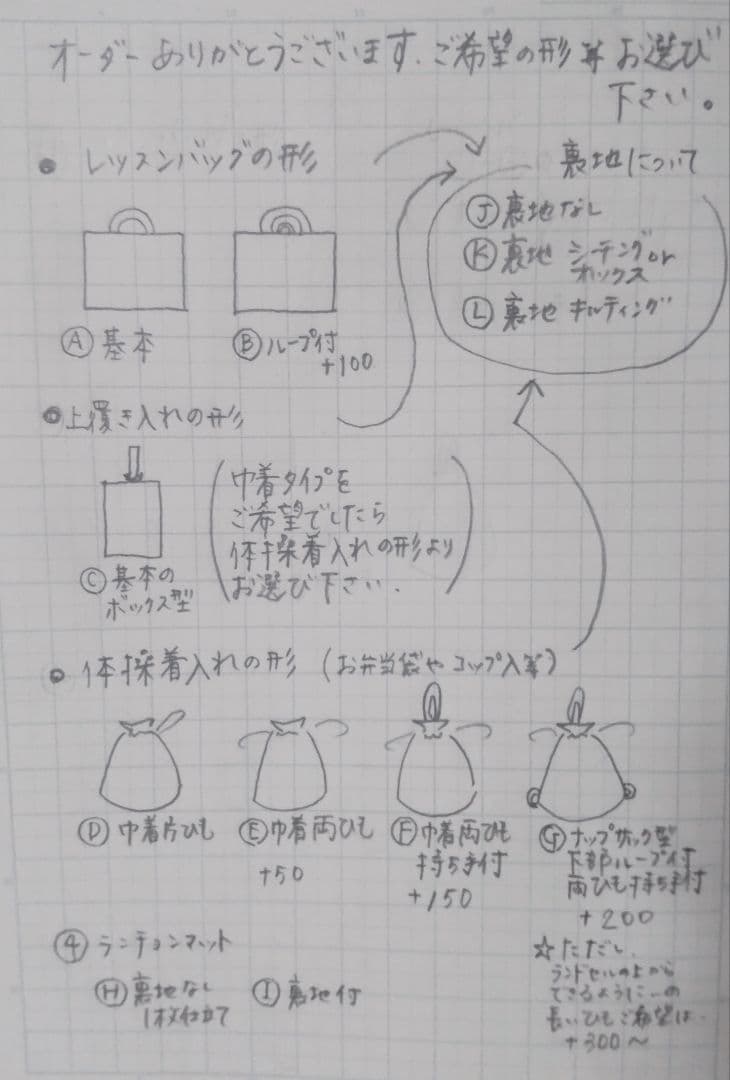 オーダーありがとうございます. ご希望の形等お選び
下さい。
● レッスンバッグの形
Ⓐ 基本
Ⓑ ループ付
+100
裏地について
Ⓙ 裏地なし
Ⓚ 裏地 シーチングor
オックス
Ⓛ 裏地 キルティング
● 上履き入れの形
Ⓒ 基本の
ボックス型
(巾着タイプを
ご希望でしたら
体操着入れの形より
お選び下さい.)
● 体操着入れの形 (お弁当袋やコップ入等)
Ⓓ 巾着片ひも
Ⓔ 巾着両ひも
+50
Ⓕ 巾着両ひも
持ち手付
+150
Ⓖ ナップサック型
下部ループ付
両ひも持ち手付
+200
☆ただし、
ランドセルの上から
できるように…の
長いひもご希望は.
+300〜
④ ランチョンマット
Ⓗ 裏地なし
1枚仕立て
Ⓘ 裏地付